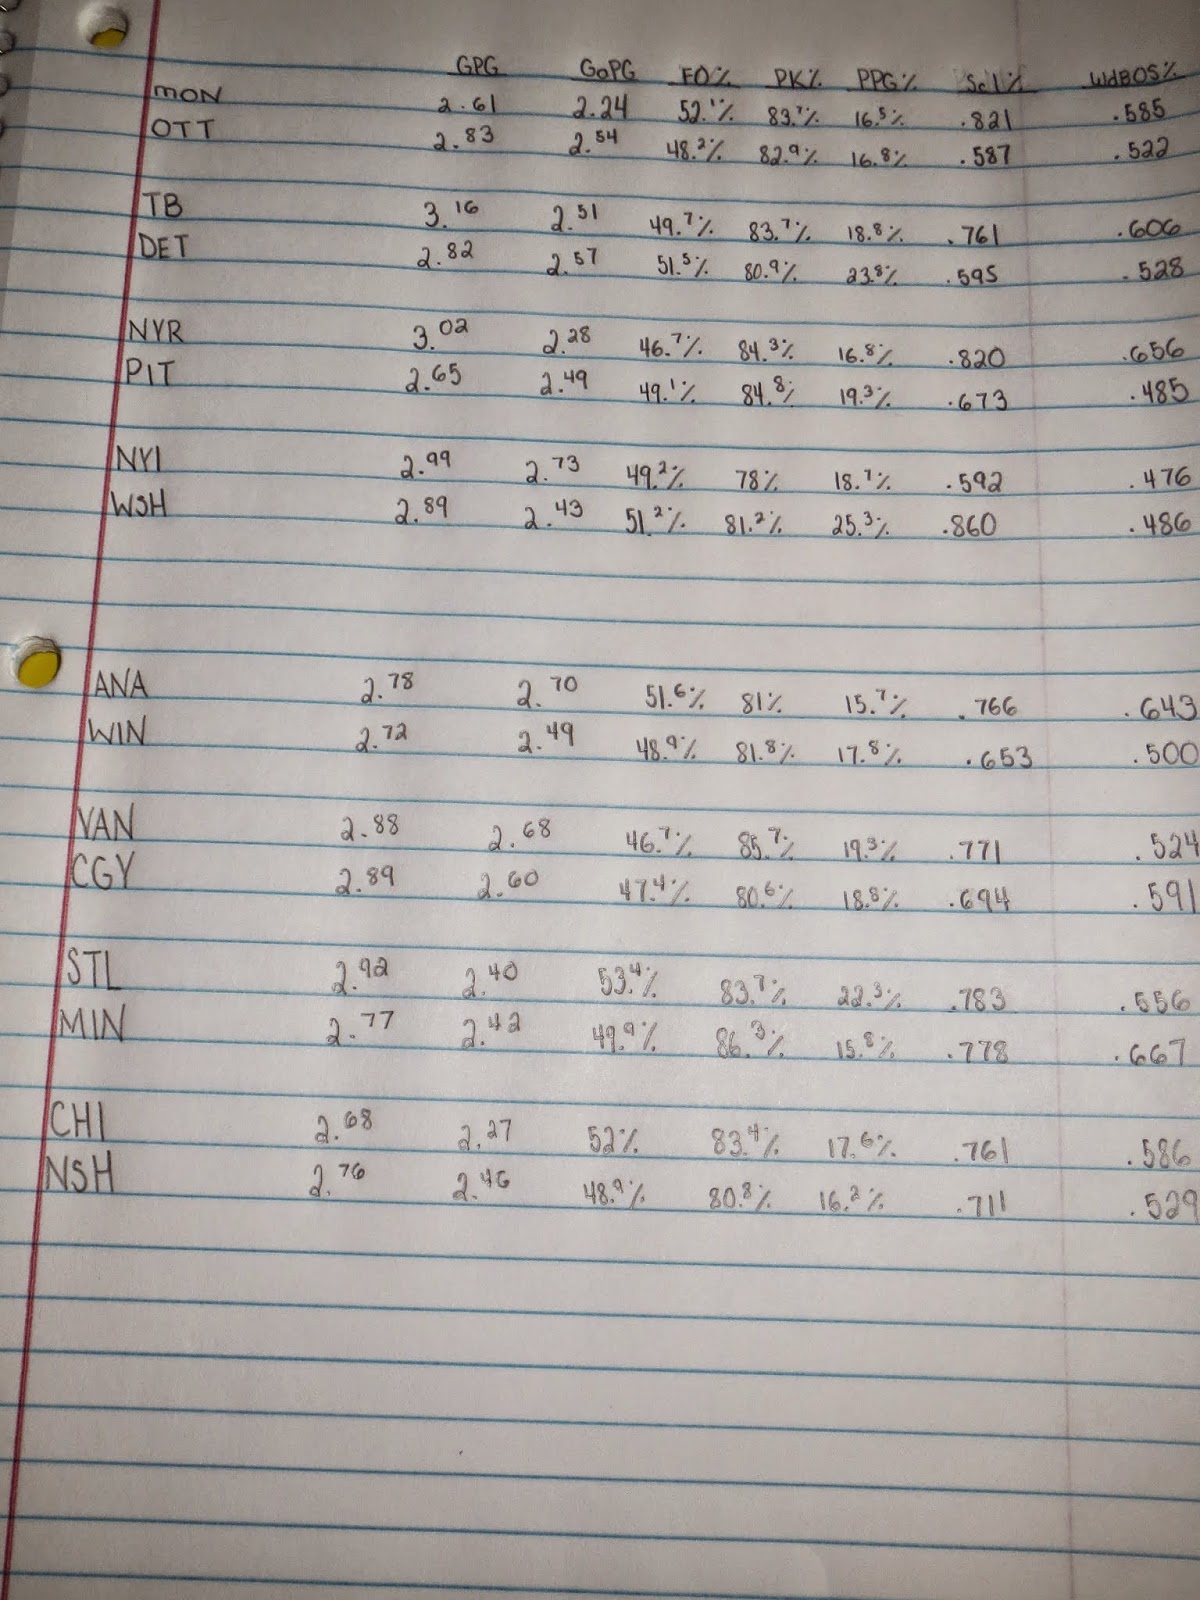 GPG GoPG FO% PK% PPG% Sc1% WdBOS%
MON 2.61 2.24 52.1% 83.7% 16.5% .821 .585
OTT 2.83 2.54 48.2% 82.9% 16.8% .587 .522
TB 3.16 2.51 49.7% 83.7% 18.8% .761 .606
DET 2.82 2.57 51.5% 80.9% 23.8% .595 .528
NYR 3.02 2.28 46.7% 84.3% 16.8% .820 .656
PIT 2.65 2.49 49.1% 84.8% 19.3% .673 .485
NYI 2.99 2.73 49.2% 78% 18.7% .592 .476
WSH 2.89 2.43 51.2% 81.2% 25.3% .860 .486
ANA 2.78 2.70 51.6% 81% 15.7% .766 .643
WIN 2.72 2.49 48.9% 81.8% 17.8% .653 .500
VAN 2.88 2.68 46.7% 85.7% 19.3% .771 .524
CGY 2.89 2.60 47.4% 80.6% 18.8% .694 .591
STL 2.92 2.40 53.4% 83.7% 22.3% .783 .556
MIN 2.77 2.42 49.9% 86.3% 15.8% .778 .667
CHI 2.68 2.27 52% 83.4% 17.6% .761 .586
NSH 2.76 2.46 48.9% 80.8% 16.2% .711 .529